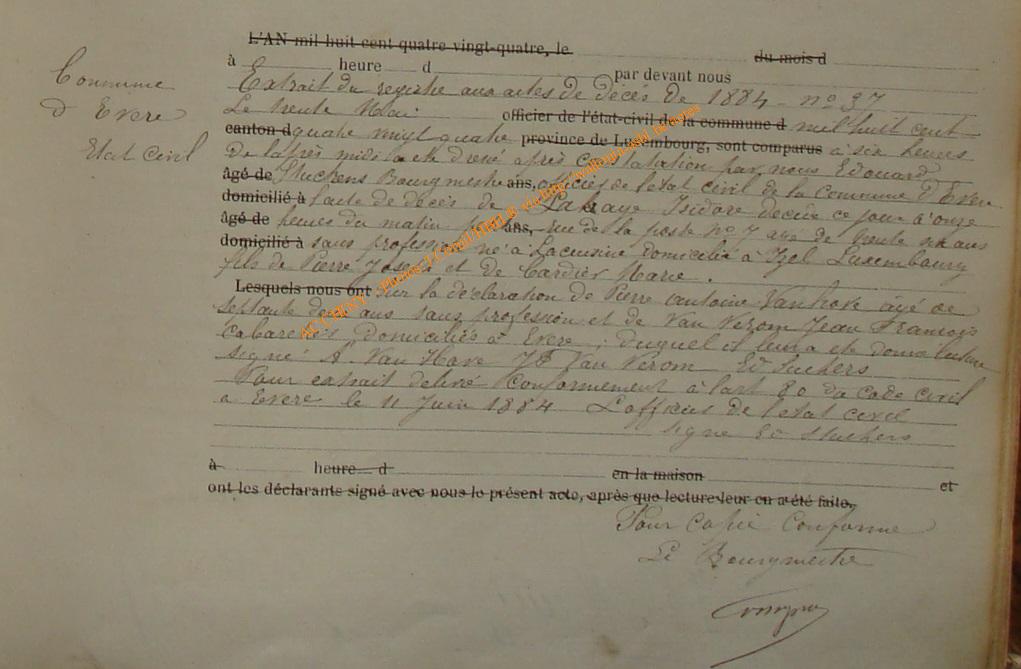 L'AN mil huit cent quatre vingt-quatre, le du mois d
à heure d par devant nous
Commune
d'Evere
Etat Civil
Extrait du registre aux actes de décès de 1884 - n° 37
Le trente Mai officier de l'état-civil de la commune d mil huit cent
canton d quatre vingt quatre province de Luxembourg, sont comparus à six heures
De l'après midi a été dressé après constatation par nous Edouard
âgé de Stuckens Bourgmestre ans, officier de l'état civil de la Commune d'Evere
domicilié à l'acte de décès de Lahaye Isidore décédé ce jour à onze
âgé de heures du matin ans, rue de la poste n° 7 âgé de trente six ans
domicilié à sans profession né à Lacuisine domicilié à Izel Luxembourg
fils de Pierre Joseph et de Cardier Marie.
Lesquels nous ont Sur la déclaration de Pierre Antoine Vanhove âgé de
Septante deux ans sans profession et de Van Verom Jean François
Cabaretier Domiciliés à Evere, Duquel il leur a été donné lecture
Signé A. Van Hove JF Van Verom Ed Stuckens
Pour extrait délivré conformément à l'art 80 du code civil
à Evere le 11 Juin 1884 L'officier de l'état civil
signé Ed Stuckens
à heure d en la maison et
ont les déclarants signé avec nous le présent acte, après que lecture leur en a été faite.
Pour Copie Conforme
Le Bourgmestre